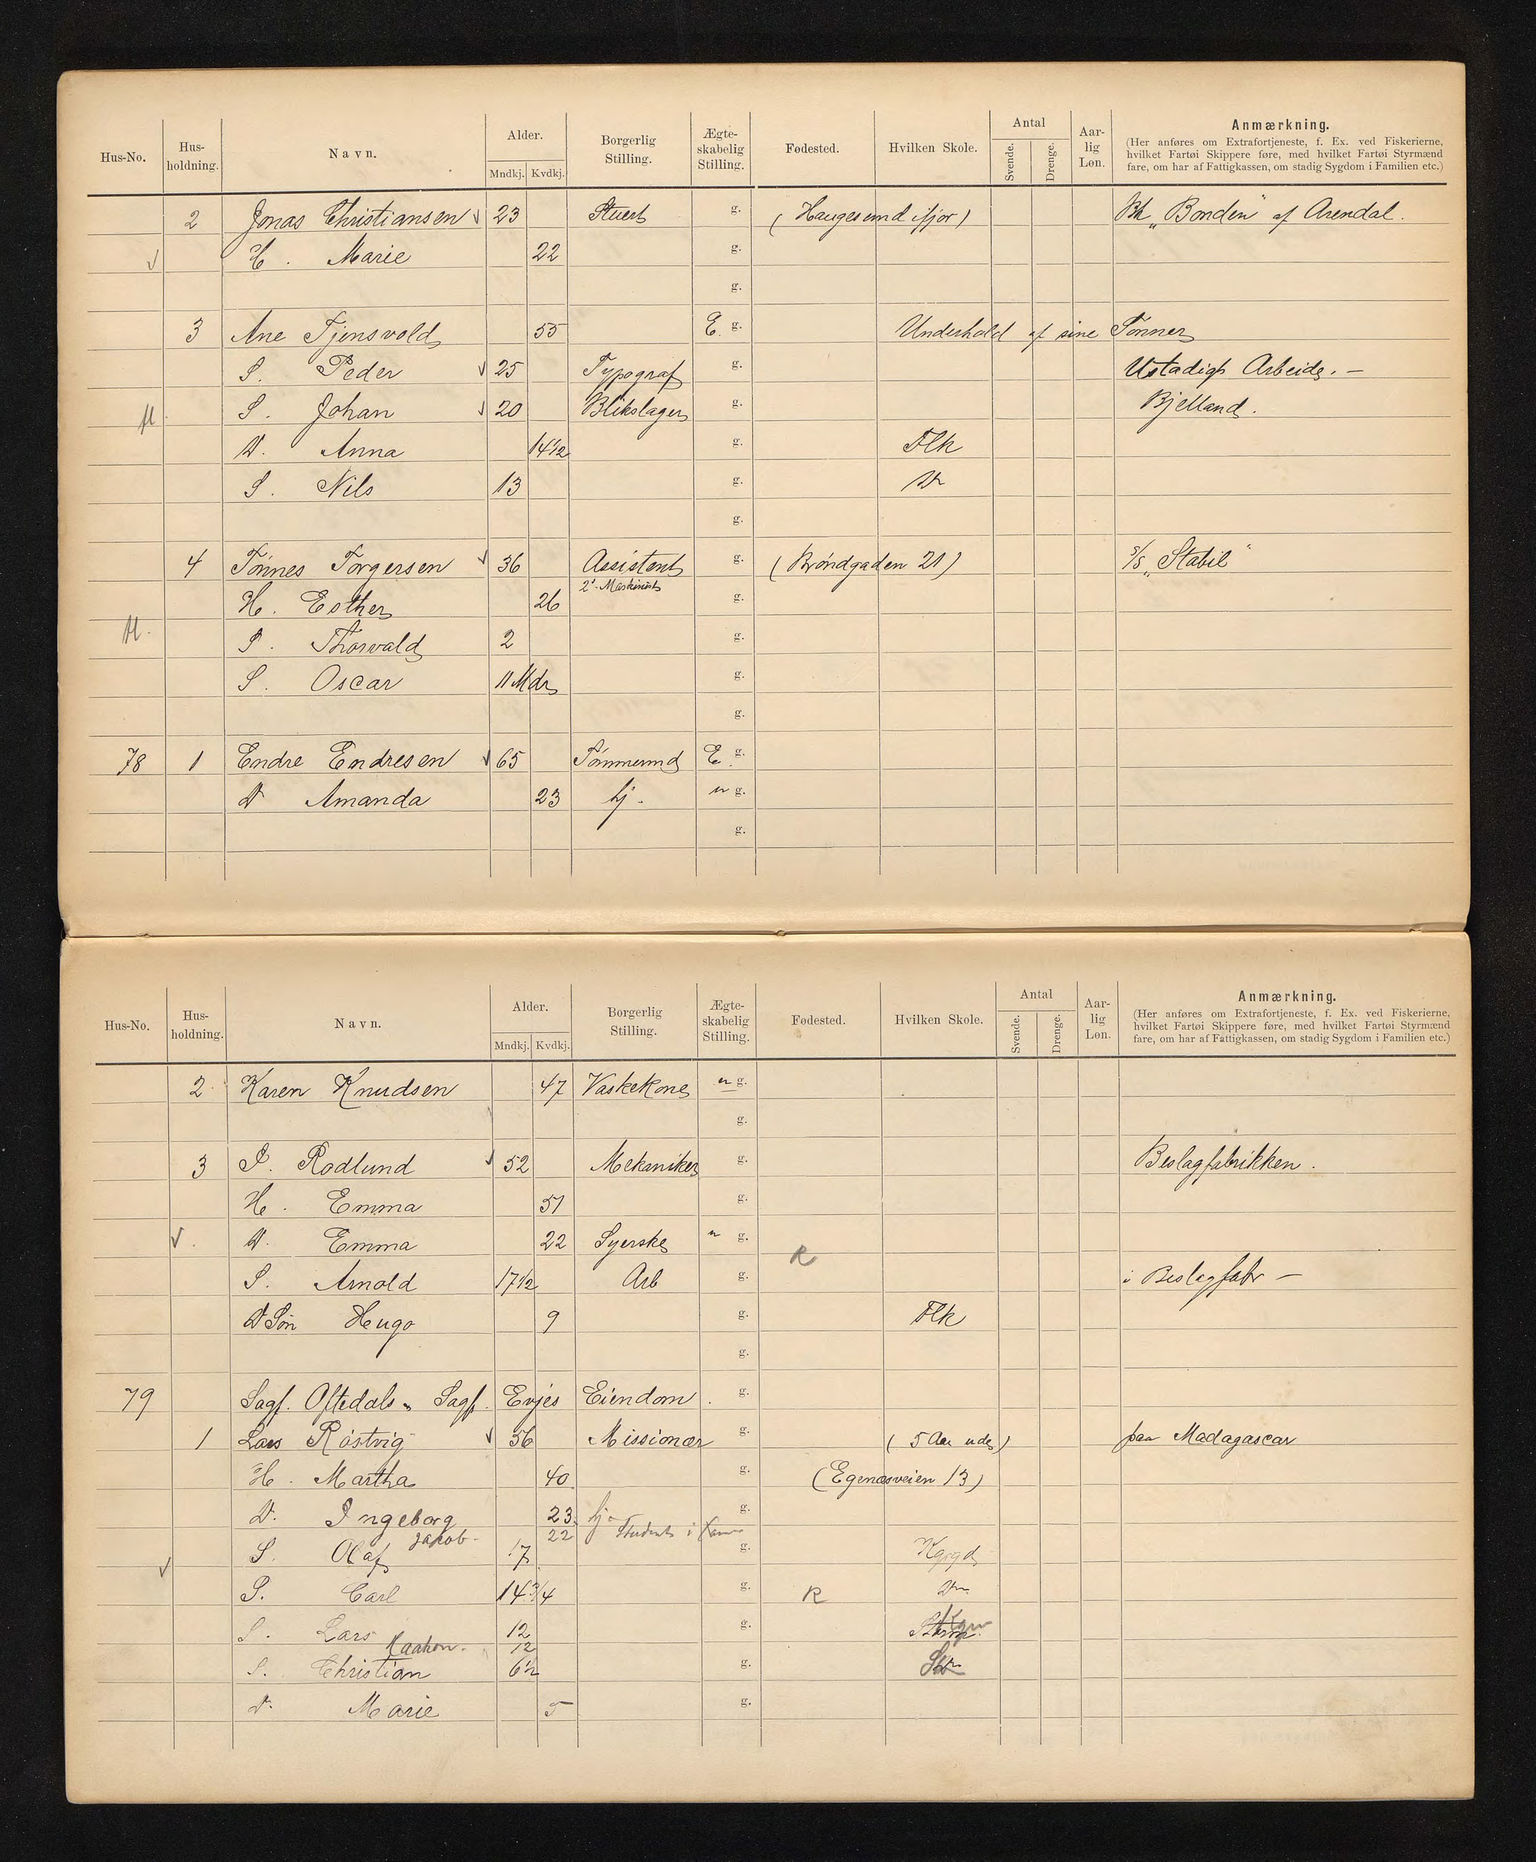 Hus-No. Hus-holdning. Navn. Alder. Mndkj. Kvdkj. Borgerlig Stilling. Ægte-skabelig Stilling. Fødested. Hvilken Skole. Antal Svende. Drenge. Aar-lig Løn. Anmærkning.
(Her anføres om Extrafortjeneste, f. Ex. ved Fiskerierne, hvilket Fartøi Skippere føre, med hvilket Fartøi Styrmænd fare, om har af Fattigkassen, om stadig Sygdom i Familien etc.)
2 Jonas Christiansen √ 23 Stuert g. (Haugesund ifjor) Bk „Bonden" af Arendal.
√ H. Marie 22 g.
g.
3 Ane Tjensvold 55 E. g. Underhold af sine Sønner
S. Peder √ 25 Typograf g. Ustadigt Arbeide. —
S. Johan √ 20 Blikslager g. Bjelland.
D. Anna 14½ g. Flk
S. Nils 13 g. Do
g.
4 Tønnes Torgersen √ 36 Assistent g. (Brøndgaden 21) S/S „Stabil"
2' Maskinist
H. Esther 26 g.
S. Thorvald 2 g.
S. Oscar 11 Mdr g.
g.
78 1 Endre Endresen √ 65 Tømmermd E. g.
D Amanda 23 hj. u g.
g.
Hus-No. Hus-holdning. Navn. Alder. Mndkj. Kvdkj. Borgerlig Stilling. Ægte-skabelig Stilling. Fødested. Hvilken Skole. Antal Svende. Drenge. Aar-lig Løn. Anmærkning.
(Her anføres om Extrafortjeneste, f. Ex. ved Fiskerierne, hvilket Fartøi Skippere føre, med hvilket Fartøi Styrmænd fare, om har af Fattigkassen, om stadig Sygdom i Familien etc.)
2 Karen Knudsen 47 Vaskekone u g.
g.
3 P. Rodlund √ 52 Mekaniker g. Beslagfabrikken.
H. Emma 51 g.
√. D. Emma 22 Syerske u g.
R
S. Arnold 17½ Arb g. i Beslagfabr —
D Søn Hugo 9 g. Flk
g.
79 Sagf. Oftedals & Sagf. Evjes Eiendom. g.
1 Lars Røstvig √ 56 Missionær g. (5 Aar ude) paa Madagascar
H. Martha 40 g. (Egenæsveien 13)
D. Ingeborg 23 hj. g.
Jakob 22 Student i
√ S. Olaf 17 g.
S. Carl 14¾ g. R Do
S. Lars 12 g.
Haakon. 12
S. Christian 6½ g.
D. Marie 5 g.